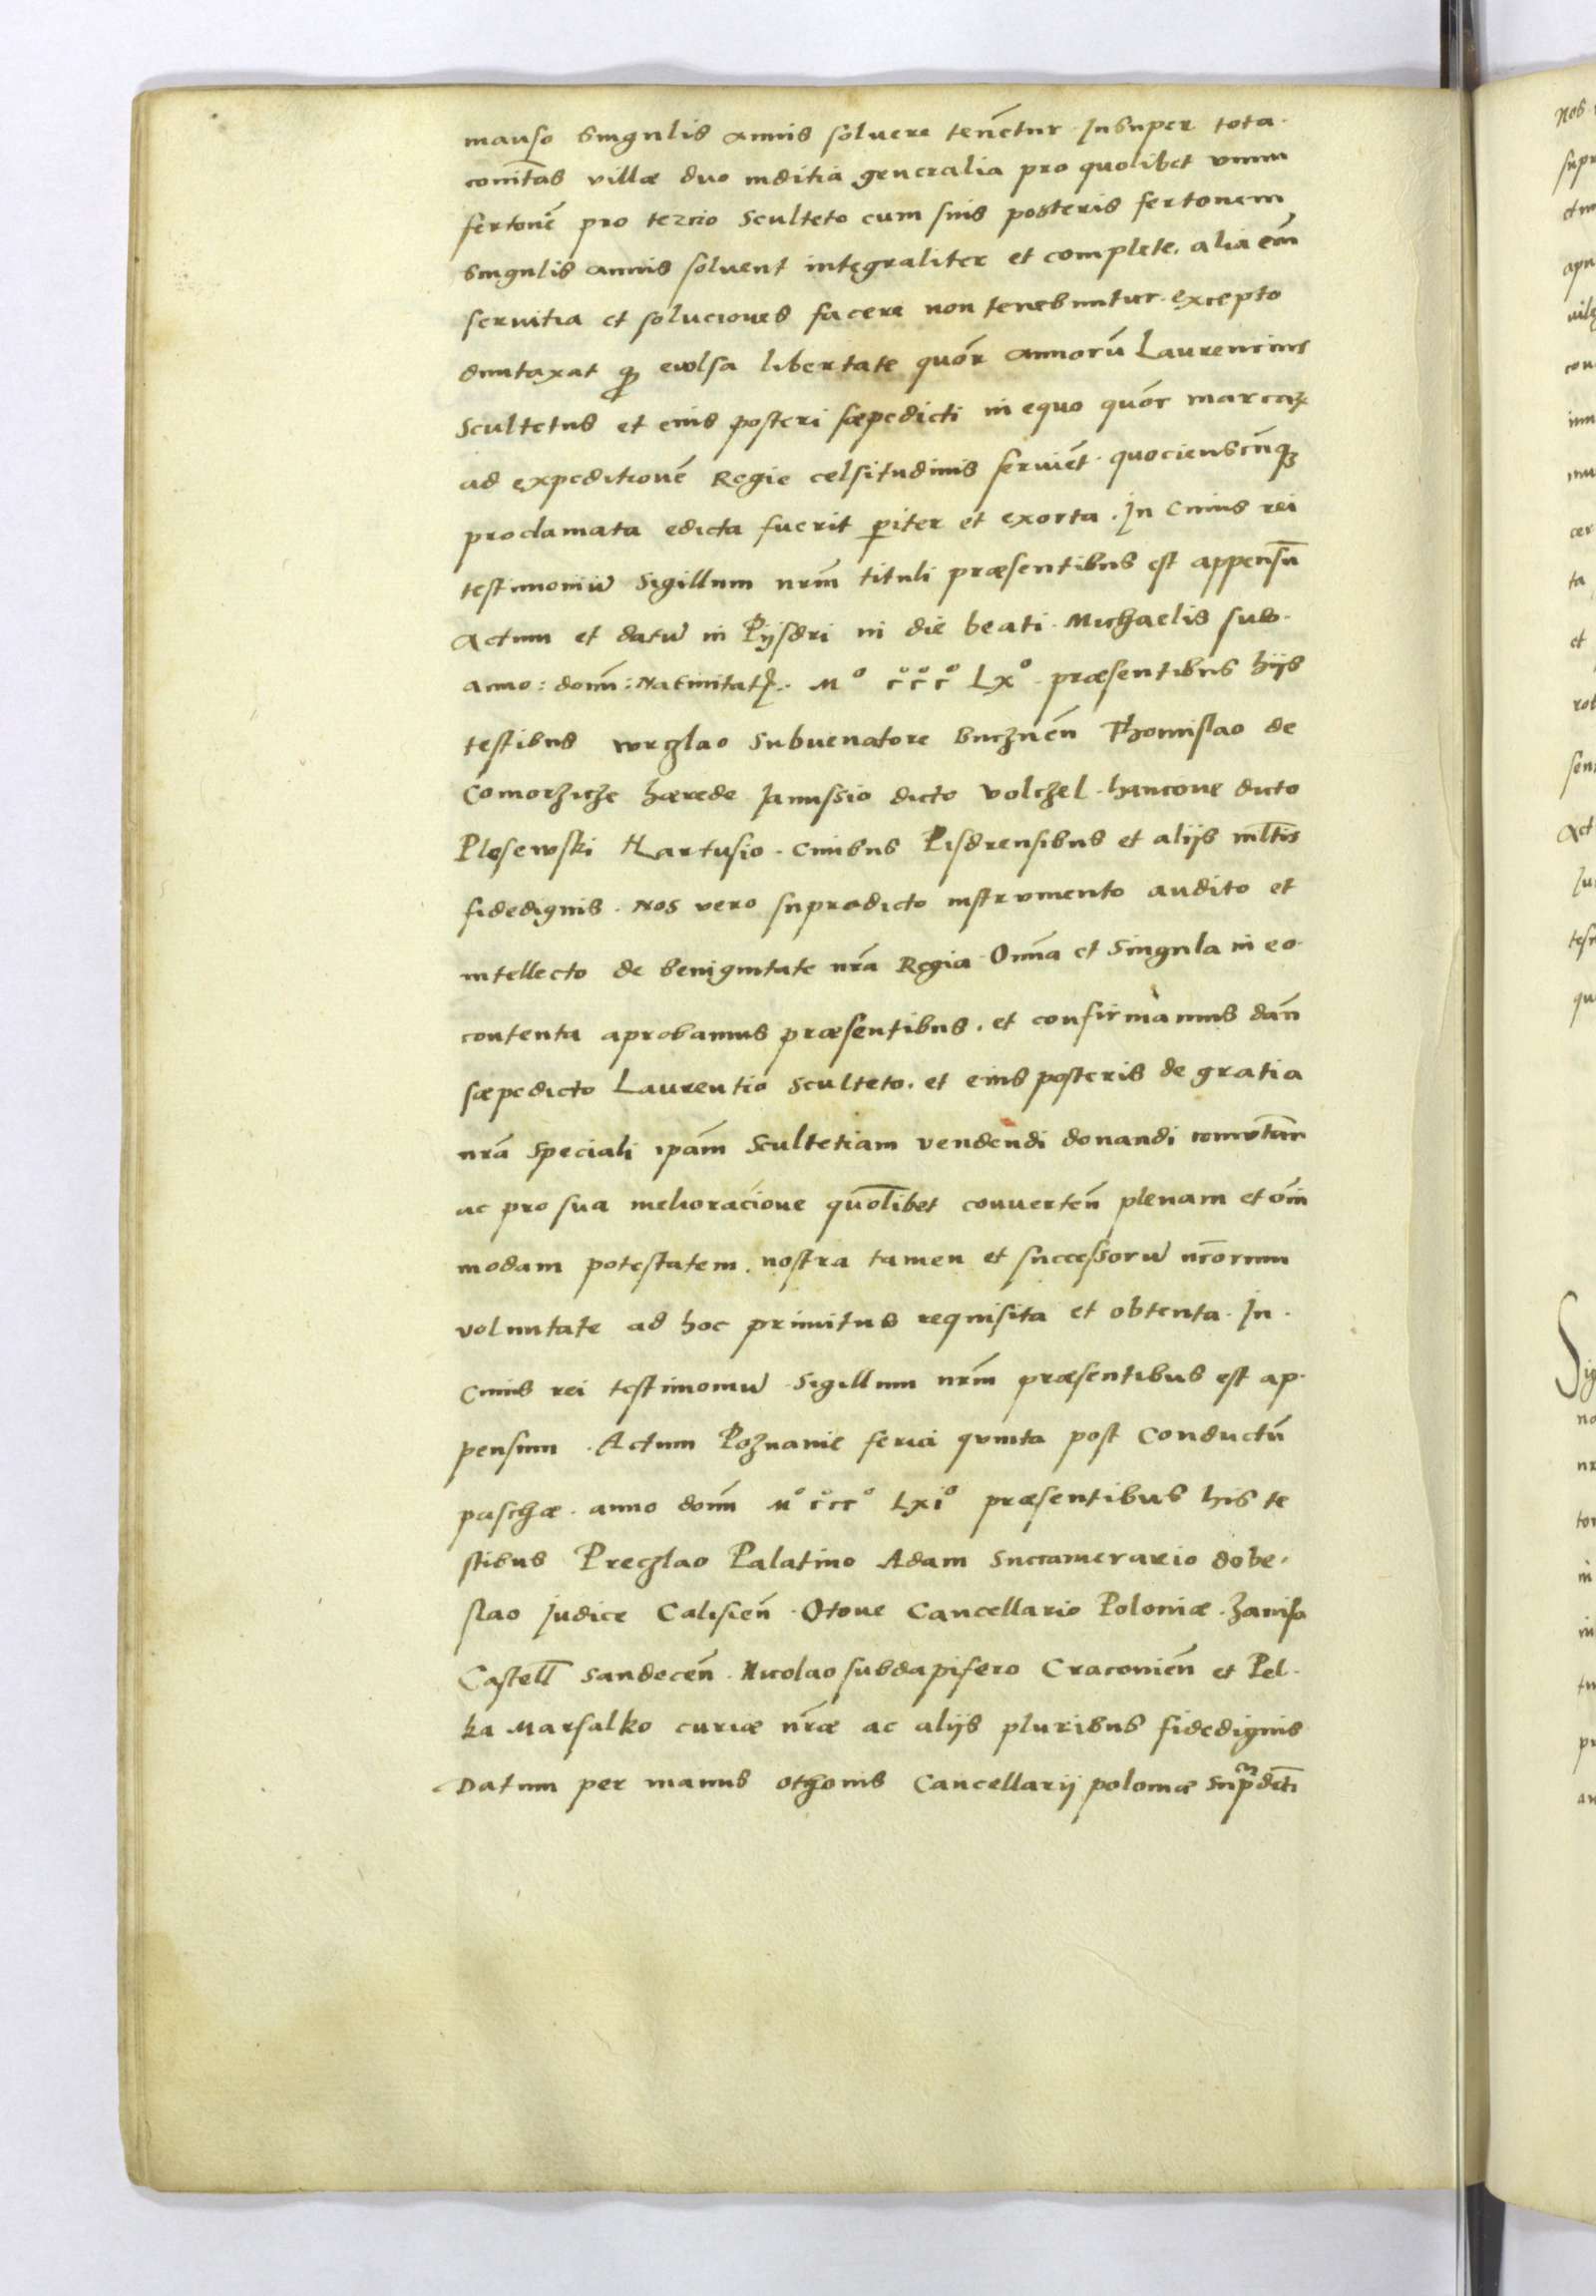 manso singulis annis soluere tenētur. Insuper tota.
com̄tas villæ duo inditia generalia pro quolibet vnum
fertonē pro tercio Sculteto cum suis posteris fertonem
singulis annis soluent integraliter et complete. alia em̄
seruitia et soluciones facere non tenebuntur. excepto
duntaxat ꝙ evolsa libertate quōr annorū Laurencius
Scultetus et eius posteri sæpedicti in equo quōr marcaꝝ
ad expeditionē Regie celsitudinis seruiēt. quocienscūqꝫ
proclamata edicta fuerit ꝑiter et exorta. In Cuius rei
testimoniū Sigillum nrm̄ tituli præsentibus est appensū
Actum et datū in Pijsdri in die beati. Michaelis sub.
anno: dom̄: Natiuitatꝭ. Mº cººcººcº Lxº. præsentibus hijs
testibus wrzlao Subuenatore bnıznēn Thomislao de
Comorzicze hærede Janussio dicto volczel. hancone dicto
Plesewski Hartusio. Ciuibus Pisdrensibus et alijs ml̄tis
fidedignis. Nos vero supradicto instrumento audito et
intellecto de benignitate nrā Regia. Omn̄a et Singula in eo.
contenta aprobamus præsentibus. et confirmamus dan̄
sæpedicto Laurentio Sculteto. et eius posteris de gratia
nrā speciali ipām Scultetiam vendendi donandi comōtan̄
ac pro sua melioracione quōlibet conuerten̄ plenam et om̄
modam potestatem. nostra tamen et successorū nrōrum
voluntate ad hoc primitus requisita et obtenta. In.
Cuius rei testimoniū Sigillum nrm̄ præsentibus est ap.
pensum. Actum Poznanie feria quinta post Conductū
paschæ. anno dom̄ Mº cºccº Lxiº præsentibus his te
stibus Preczlao Palatino Adam Succamerario dobe.
slao Judice Calisien̄. Otone Cancellario Poloniæ. Zavisa
Castell̄ Sandecen̄. Nicolao subdapifero Cracouien̄ et Pel.
ka Marsalko curiæ nr̄æ ac alijs pluribus fidedignis
Datum per manus othonis Cancellarij poloniæ Sup̃dict̄i